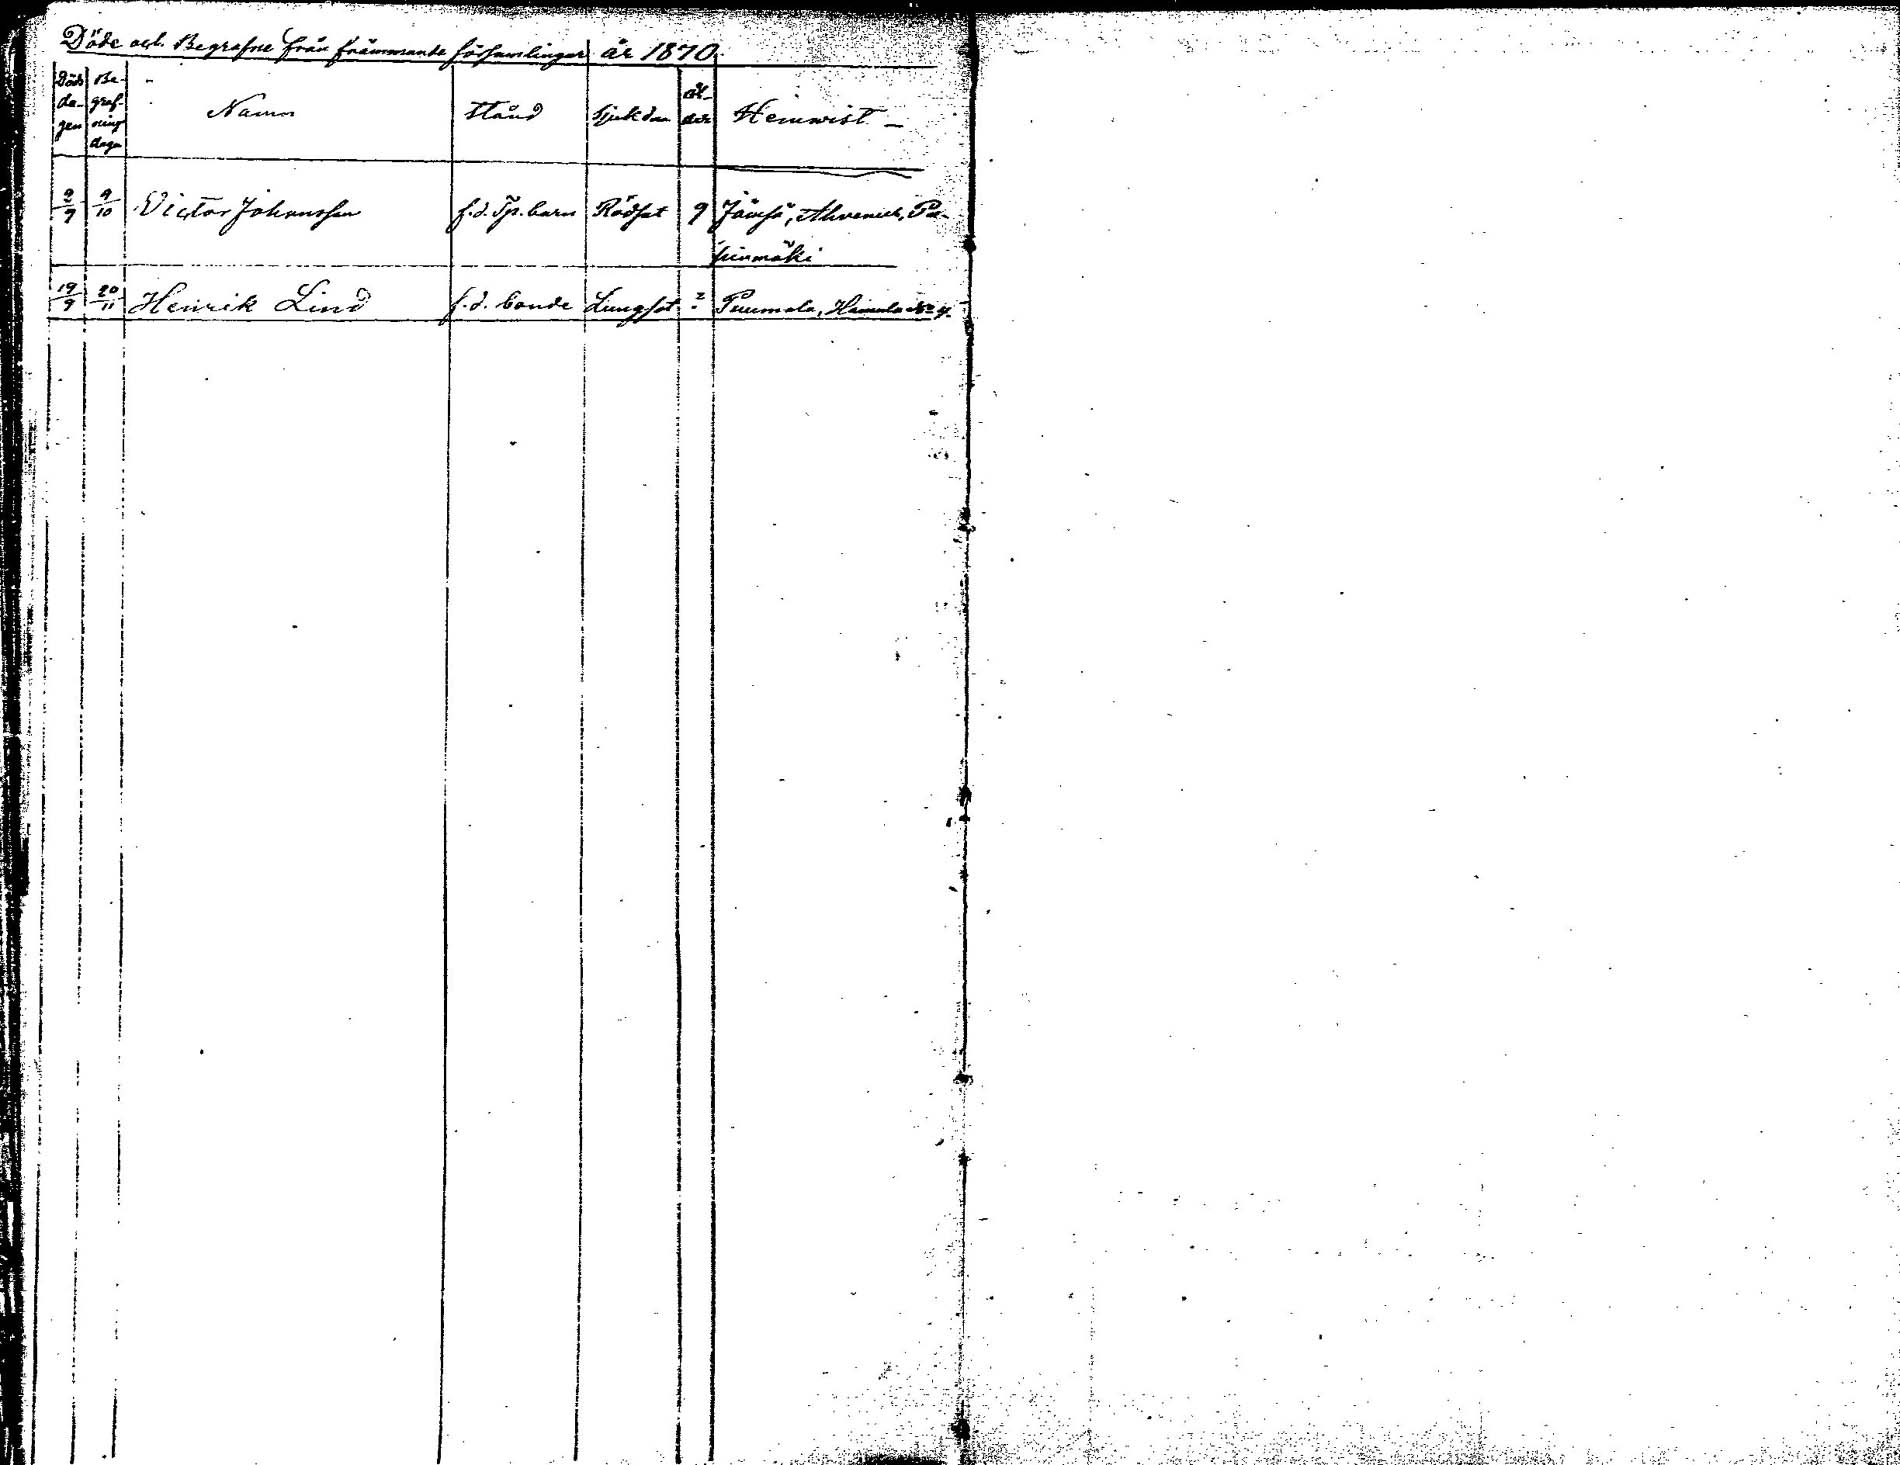 Döde och Begrafne från främmande församlingar år 1870.
Döds da- gen
Be- graf- nings dagen
Namn
Stånd
Sjukdom
Ål- der
Hemvist
2/9 9/10 Victor Johansson f.d. Tp. barn Rödsot 9 Jämsä,
mäki
19/9 20/11 Henrik Lind f.d. bonde Lungsot ? Puumala,